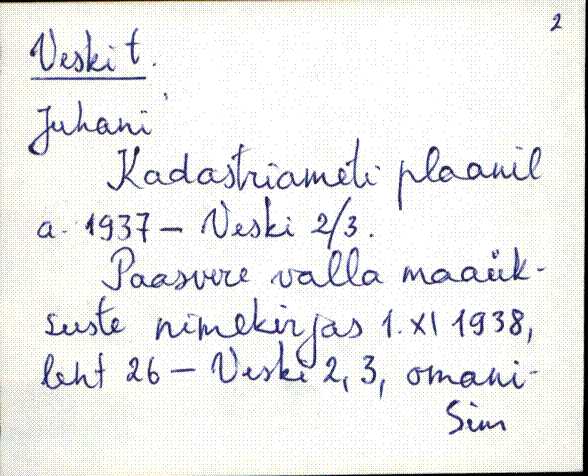 2
Veski t.
Juhani
Kadastriameti plaanil
a. 1937 – Veski 2/3.
Paasvere valla maaük-
suste nimekirjas 1. XI 1938,
leht 26 – Veski 2, 3, omani-
Sim